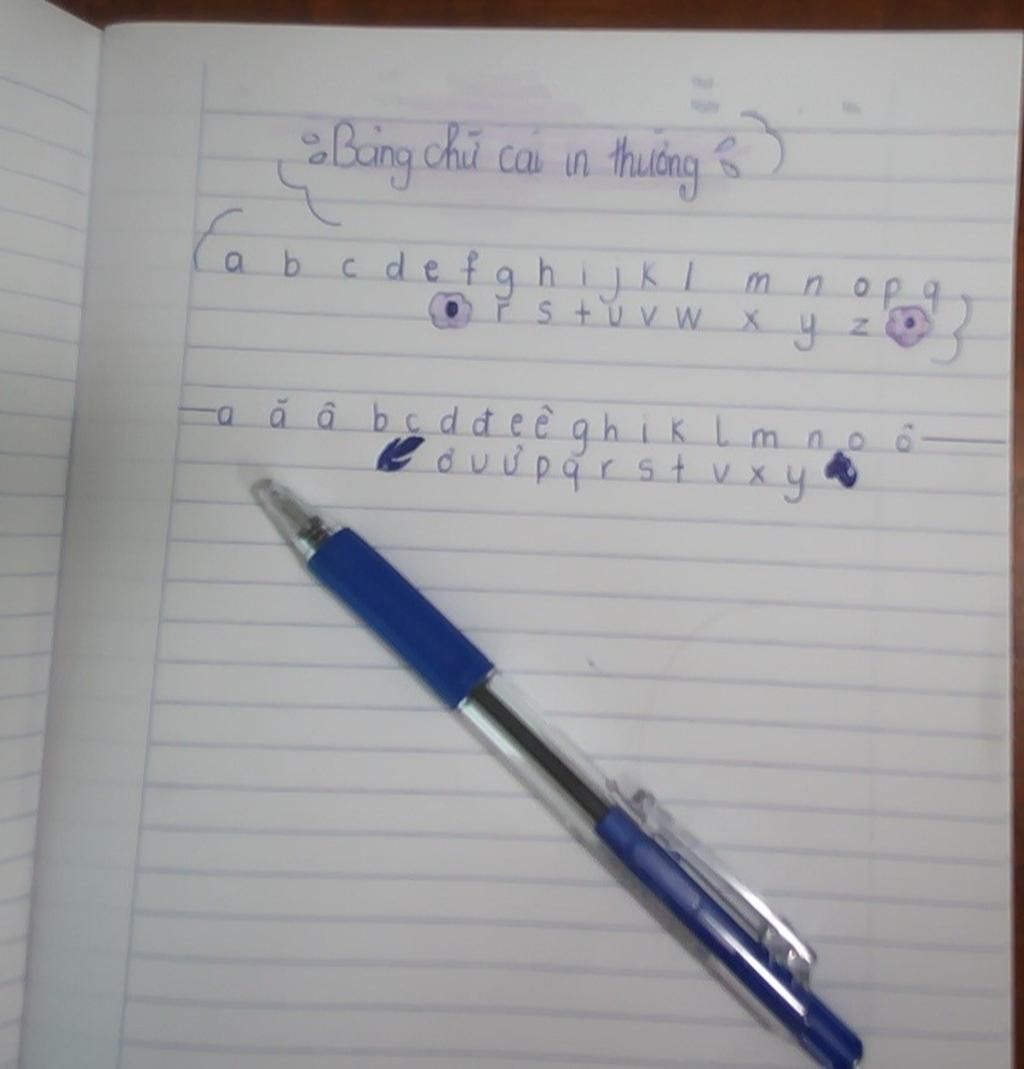 Bảng chữ cái in thường
a b c d e f g h i j k l m n o p q
r s t u v w x y z
a ă â b c d đ e ê g h i k l m n o ô
ơ u ư p q r s t v x y